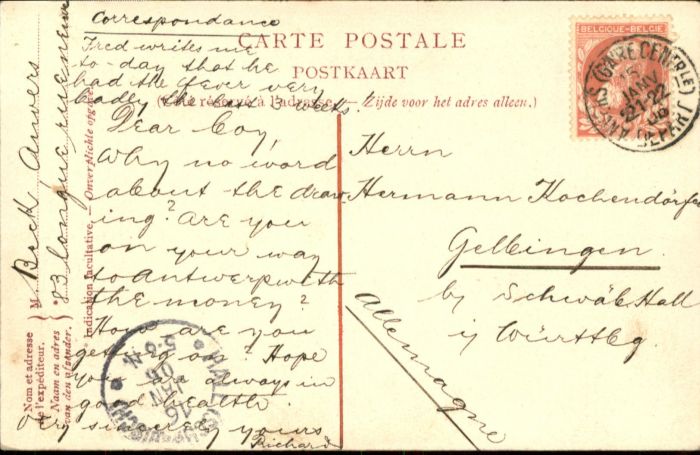 Correspondance
CARTE POSTALE
POSTKAART
Côté réservé à l'adresse. — Zijde voor het adres alleen.
Fred writes me
to-day that he
had the fever very
badly the last 3 weeks!
Dear Coy,
Why no word
about the draw-
ing? Are you
on your way
to Antwerp with
the money?
How are you
getting on? Hope
you are always in
good health.
Very sincerely yours
Richard
Herrn
Hermann Kochendörfer
Gelbingen.
by Schwäb Hall
ij Württbg.
Allemagne
BELGIQUE-BELGIË
ANVERS (GARE CENTRLE) DEPART
15 JANV 21-22 06
HALL
16 JAN 06
5-6 N.
M Beck Anvers
83 longue rue neuve
Nom et adresse
de l'expéditeur.
Naam en adres
van den afzender.
Indication facultative. — Onverplichte opgave.